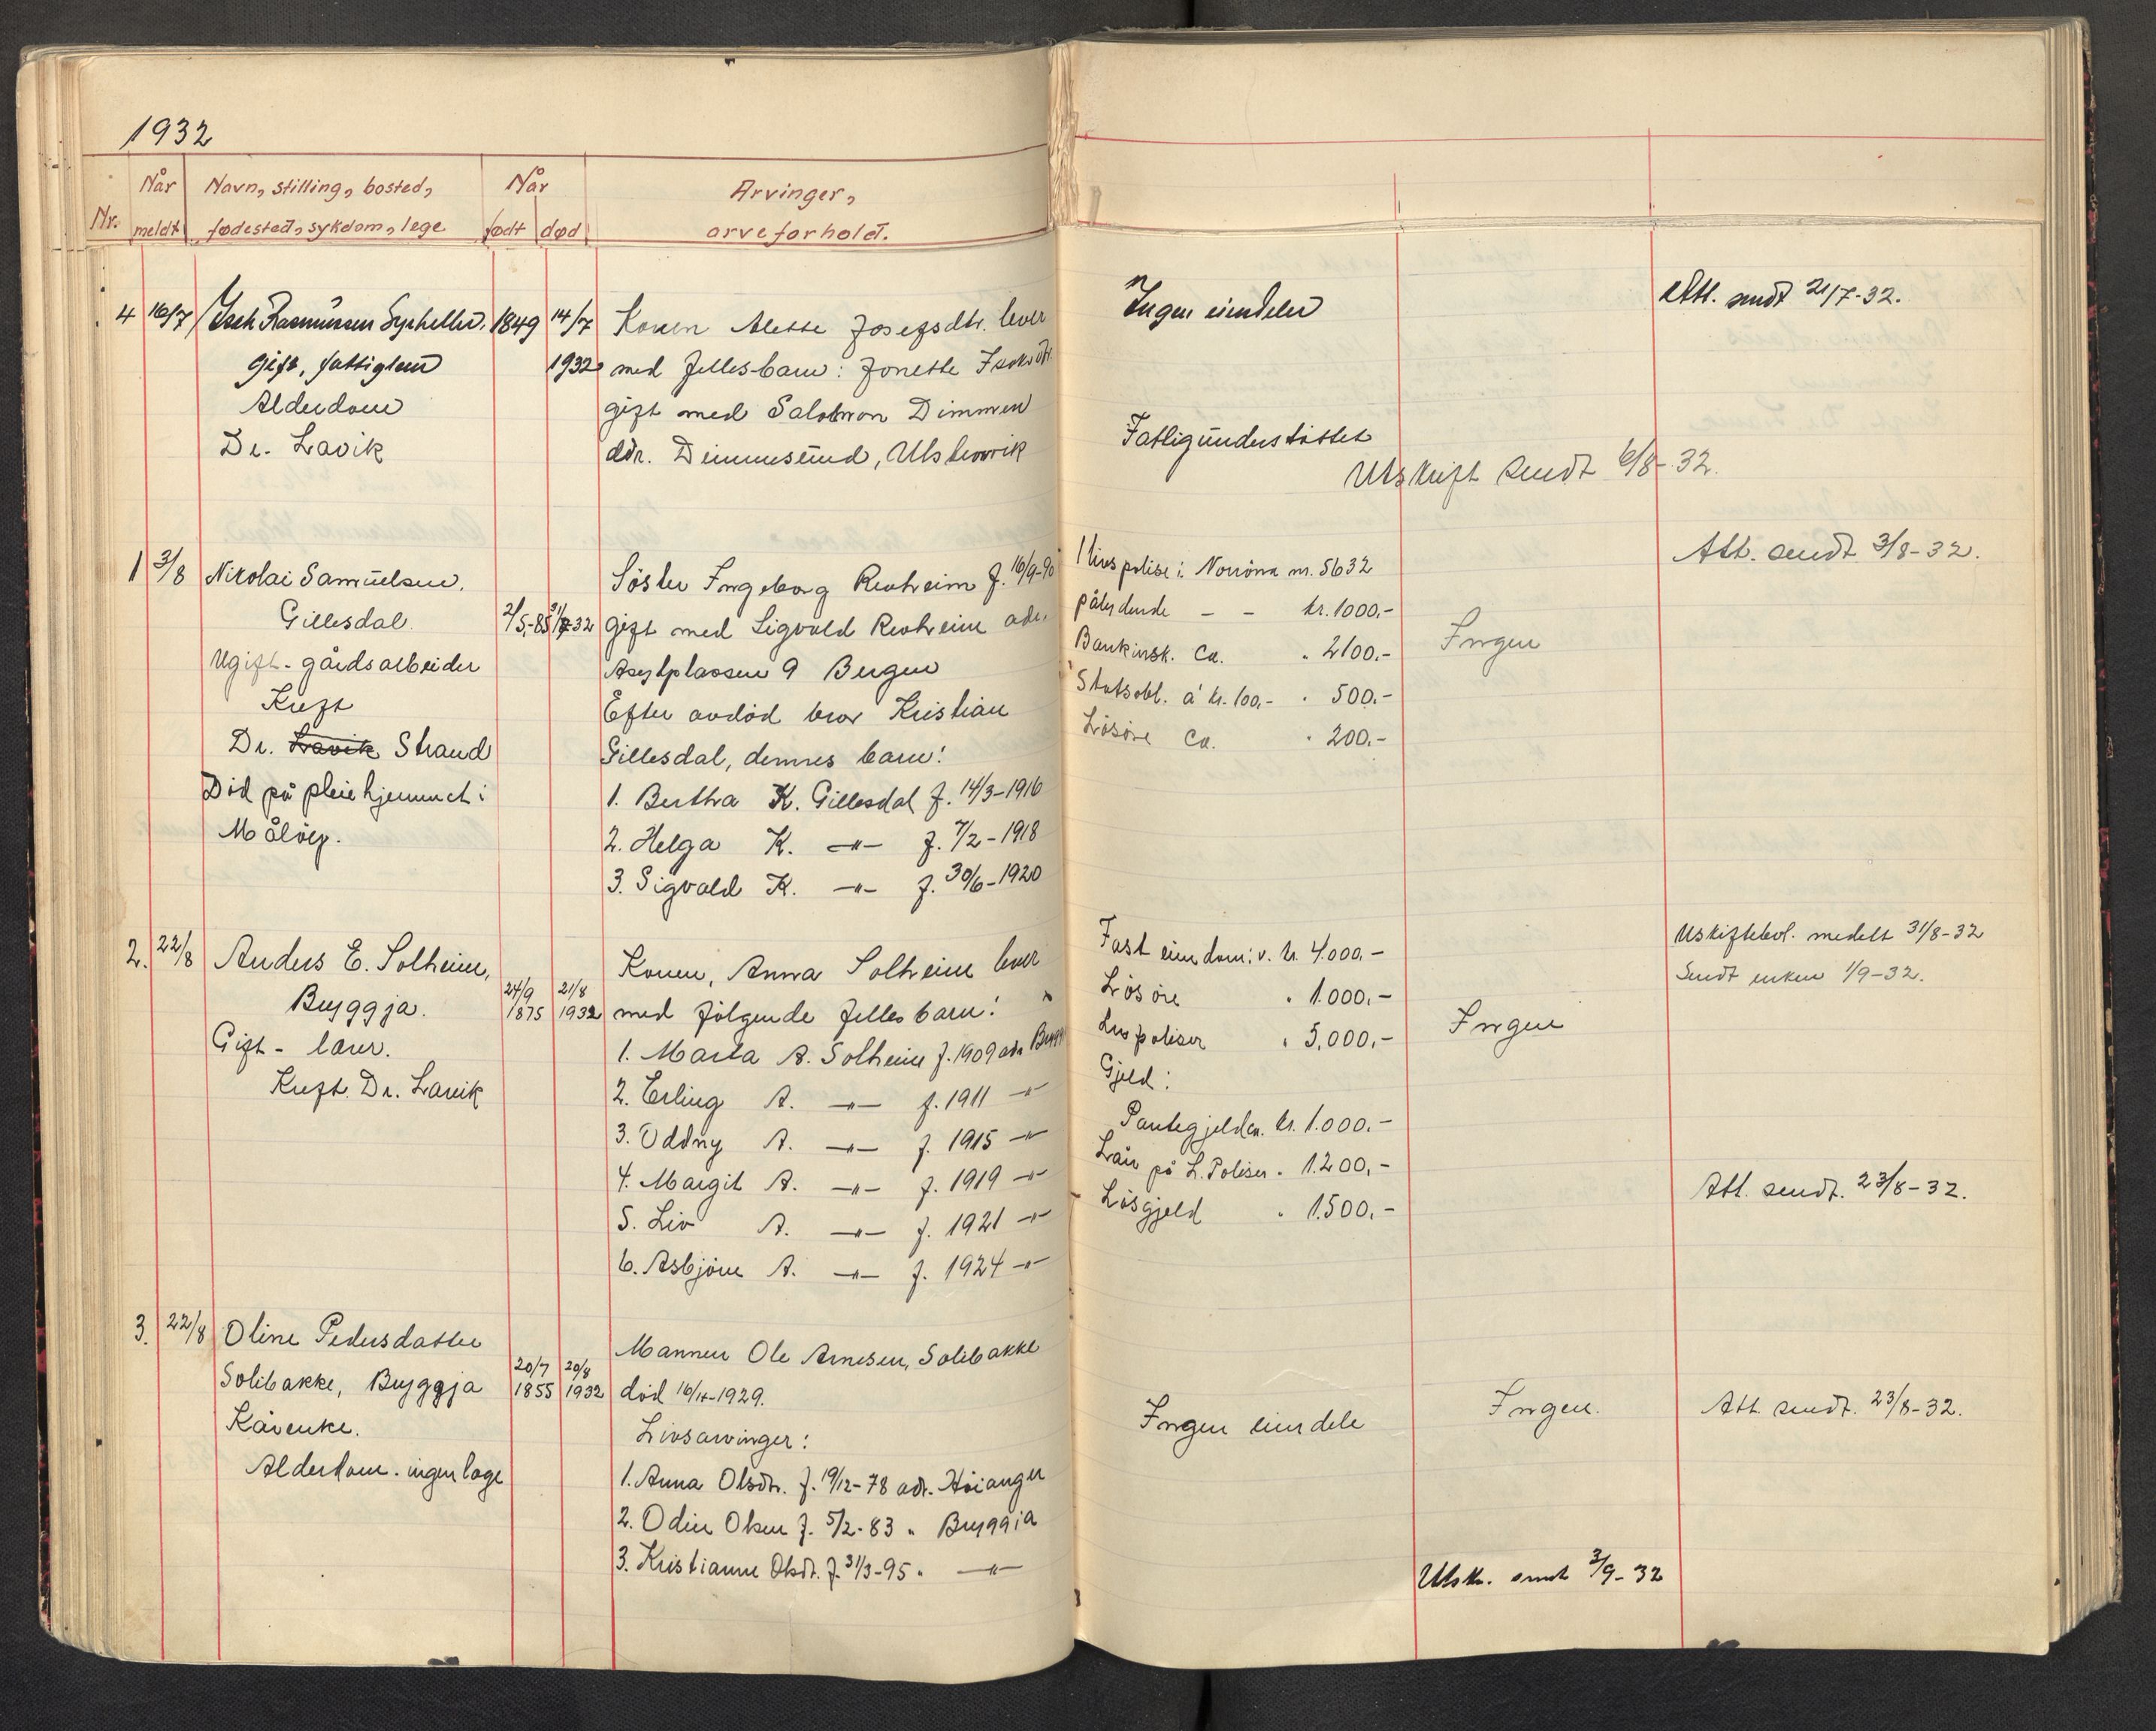 1932
Nr. Når meldt Navn, stilling, bosted, fødested, sykdom, lege Når født død Arvinger, arveforhold.
4 16/7 Isak Rasmussen 1849 14/7 Konen Alette Josefsdtr. lever
gift, fattiglem 1932 med fellesbarn: Jonette Isaksdtr.
Alderdom gift med Salomon Dimmen
Dr. Lavik adr. Dimmesund, Ulstenvik
Ingen eiendeler
Att. sendt 21/7-32.
Fattigunderstöttet
Utskrift sendt 6/8-32.
1 3/8 Nikolai Samuelsen, Söster Ingeborg Revheim f. 16/9-90
Gillesdal. 2/5-85 31/7-32 gift med Sigvald Revheim adr.
Ugift - gårdsarbeider Asylplassen 9 Bergen
Kreft Efter avdöd bror Kristian
Dr. Lavik Strand Gillesdal, dennes barn:
Död på pleiehjemmet i 1. Bertha K. Gillesdal f. 14/3-1916
Målöy. 2. Helga K. -"- f. 7/2-1918
3. Sigvald K. -"- f. 30/6-1920
1 livspolise i Norröna nr. 5632
pålydende - - kr. 1000,-
Bankinsk. ca. " 2100,-
Statsobl. á kr. 100,- " 500,-
Lösöre ca. " 200,-
Ingen
Att. sendt 3/8-32.
2. 22/8 Anders E. Solheim, Konen, Anna Solheim lever
Bryggja. 24/9 1875 21/8 1932 med fölgende fellesbarn:
Gift - lærer. 1. Marta A. Solheim f. 1909 adr.
Kreft. Dr. Lavik 2. Erling A. -"- f. 1911 -"-
3. Oddny A. -"- f. 1915 -"-
4. Margit A. -"- f. 1919 -"-
5. Liv A. -"- f. 1921 -"-
6. Asbjörn A. -"- f. 1924 -"-
Fast eiendom: v. kr. 4.000,-
Lösöre " 1.000,-
Livspoliser " 5,000,-
Gjeld:
Pantegjeld ca. kr. 1.000,-
Lån på L. Poliser " 1.200,-
Lösgjeld " 1.500,-
Ingen
Uskiftebev. medelt 31/8-32
Sendt enken 1/9-32.
Att. sendt. 23/8-32.
3. 22/8 Oline Pedersdatter Mannen Ole Arnesen, Solibakke
Solibakke, Bryggja 20/7 1855 20/8 1932 död 1929.
Kårenke. Livsarvinger:
Alderdom. ingen læge 1. Anna Olsdtr. f. 19/12-78 adr. Höianger
2. Odin Olsen f. 5/2-83 " Bryggja
3. Kristianne Olsdt. f. 31/3-95 " -"-
Ingen eiendele
Ingen.
Att. sendt. 23/8-32.
Utskr. sendt 3/9-32